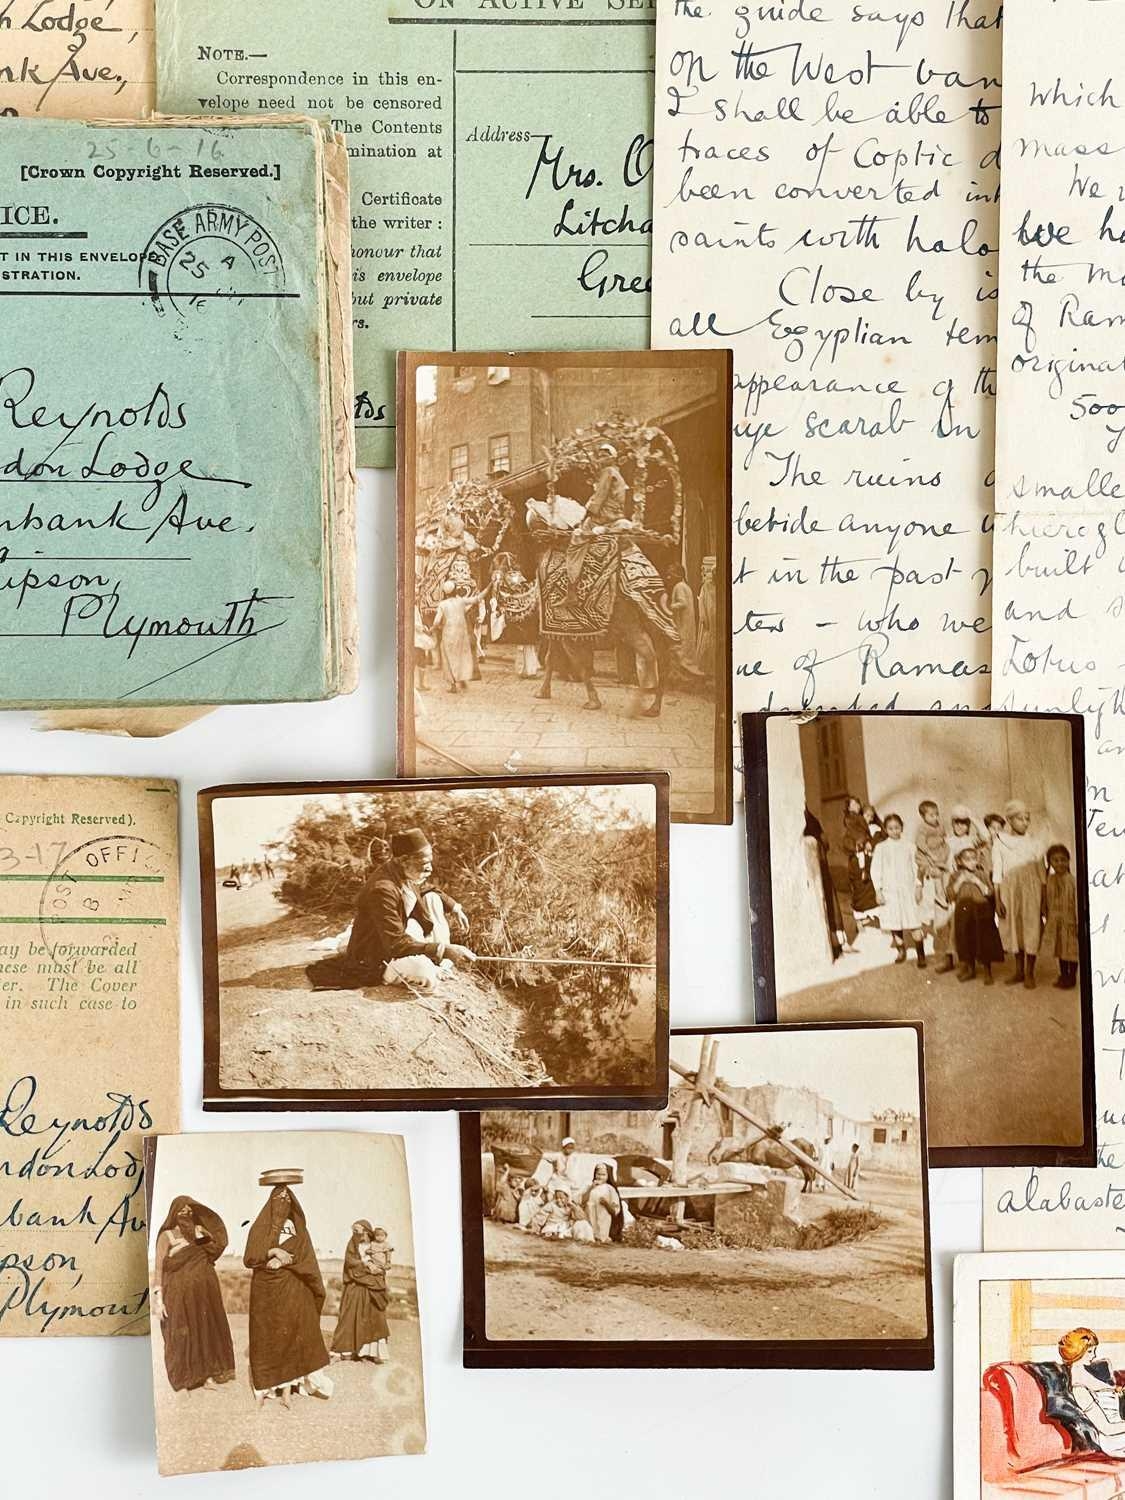 h Lodge,
nk Ave.,
ON ACTIVE SER
NOTE.—
Correspondence in this en-
velope need not be censored
The Contents
mination at
Certificate
the writer :
honour that
is envelope
but private
rs.
ds
Address—
Mrs. O
Litcha
Gree
25-6-16
[Crown Copyright Reserved.]
ICE.
T IN THIS ENVELOPE
STRATION.
BASE ARMY POST
A
25
16
Reynolds
don Lodge
nbank Ave.
ipson,
Plymouth
the guide says that
on the West ban
I shall be able to
traces of Coptic d
been converted int
saints with halo
Close by is
all Egyptian tem
appearance of th
uge scarab in
The ruins
beside anyone
t in the past
ters - who we
ue of Ramas
which
mass
We
we ha
the
of Ram
originat
500
smalle
hierogl
built
and s
Lotus -
sunlight
an
Tem
at
the
alabaste
Copyright Reserved).
3-17
POST OFFIC
8
ay be forwarded
hese must be all
er. The Cover
in such case to
Reynolds
rdon Lod
bank Av
pson,
Plymout